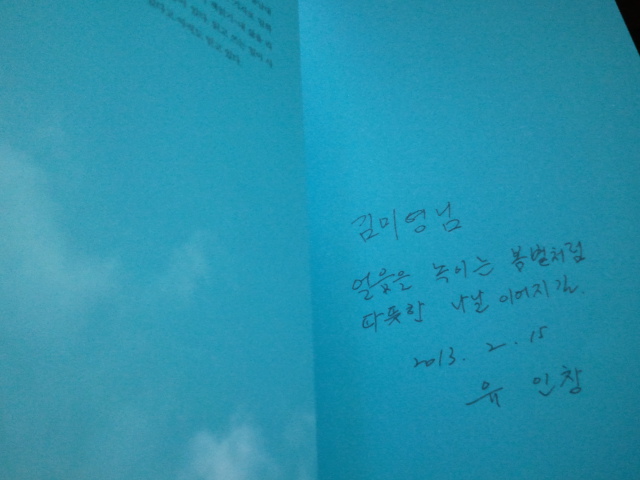 김미영님
얼음을 녹이는 봄볕처럼
따뜻한 나날 이어지길.
2013. 2. 15
유 인창